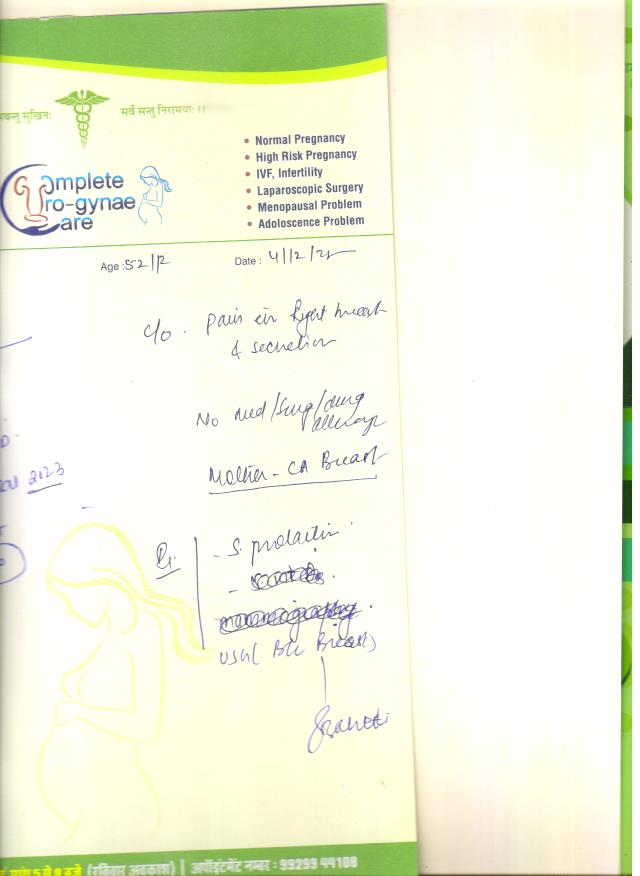 सर्वे सन्तु निरामयाः ।।
• Normal Pregnancy
• High Risk Pregnancy
• IVF, Infertility
• Laparoscopic Surgery
• Menopausal Problem
• Adoloscence Problem
Complete
Uro-gynae
Care
Age : 52/P
Date : 4/12/2
c/o . Pain in Right breast
& secretion
No med/Surg/drug
allergy
Mother - CA Breast
2023
- S. prolactin
mammography.
USG ( B/L Breast)
5 से 8 बजे (रविवार अवकाश) | अपॉइंटमेंट नम्बर : 99299 44108